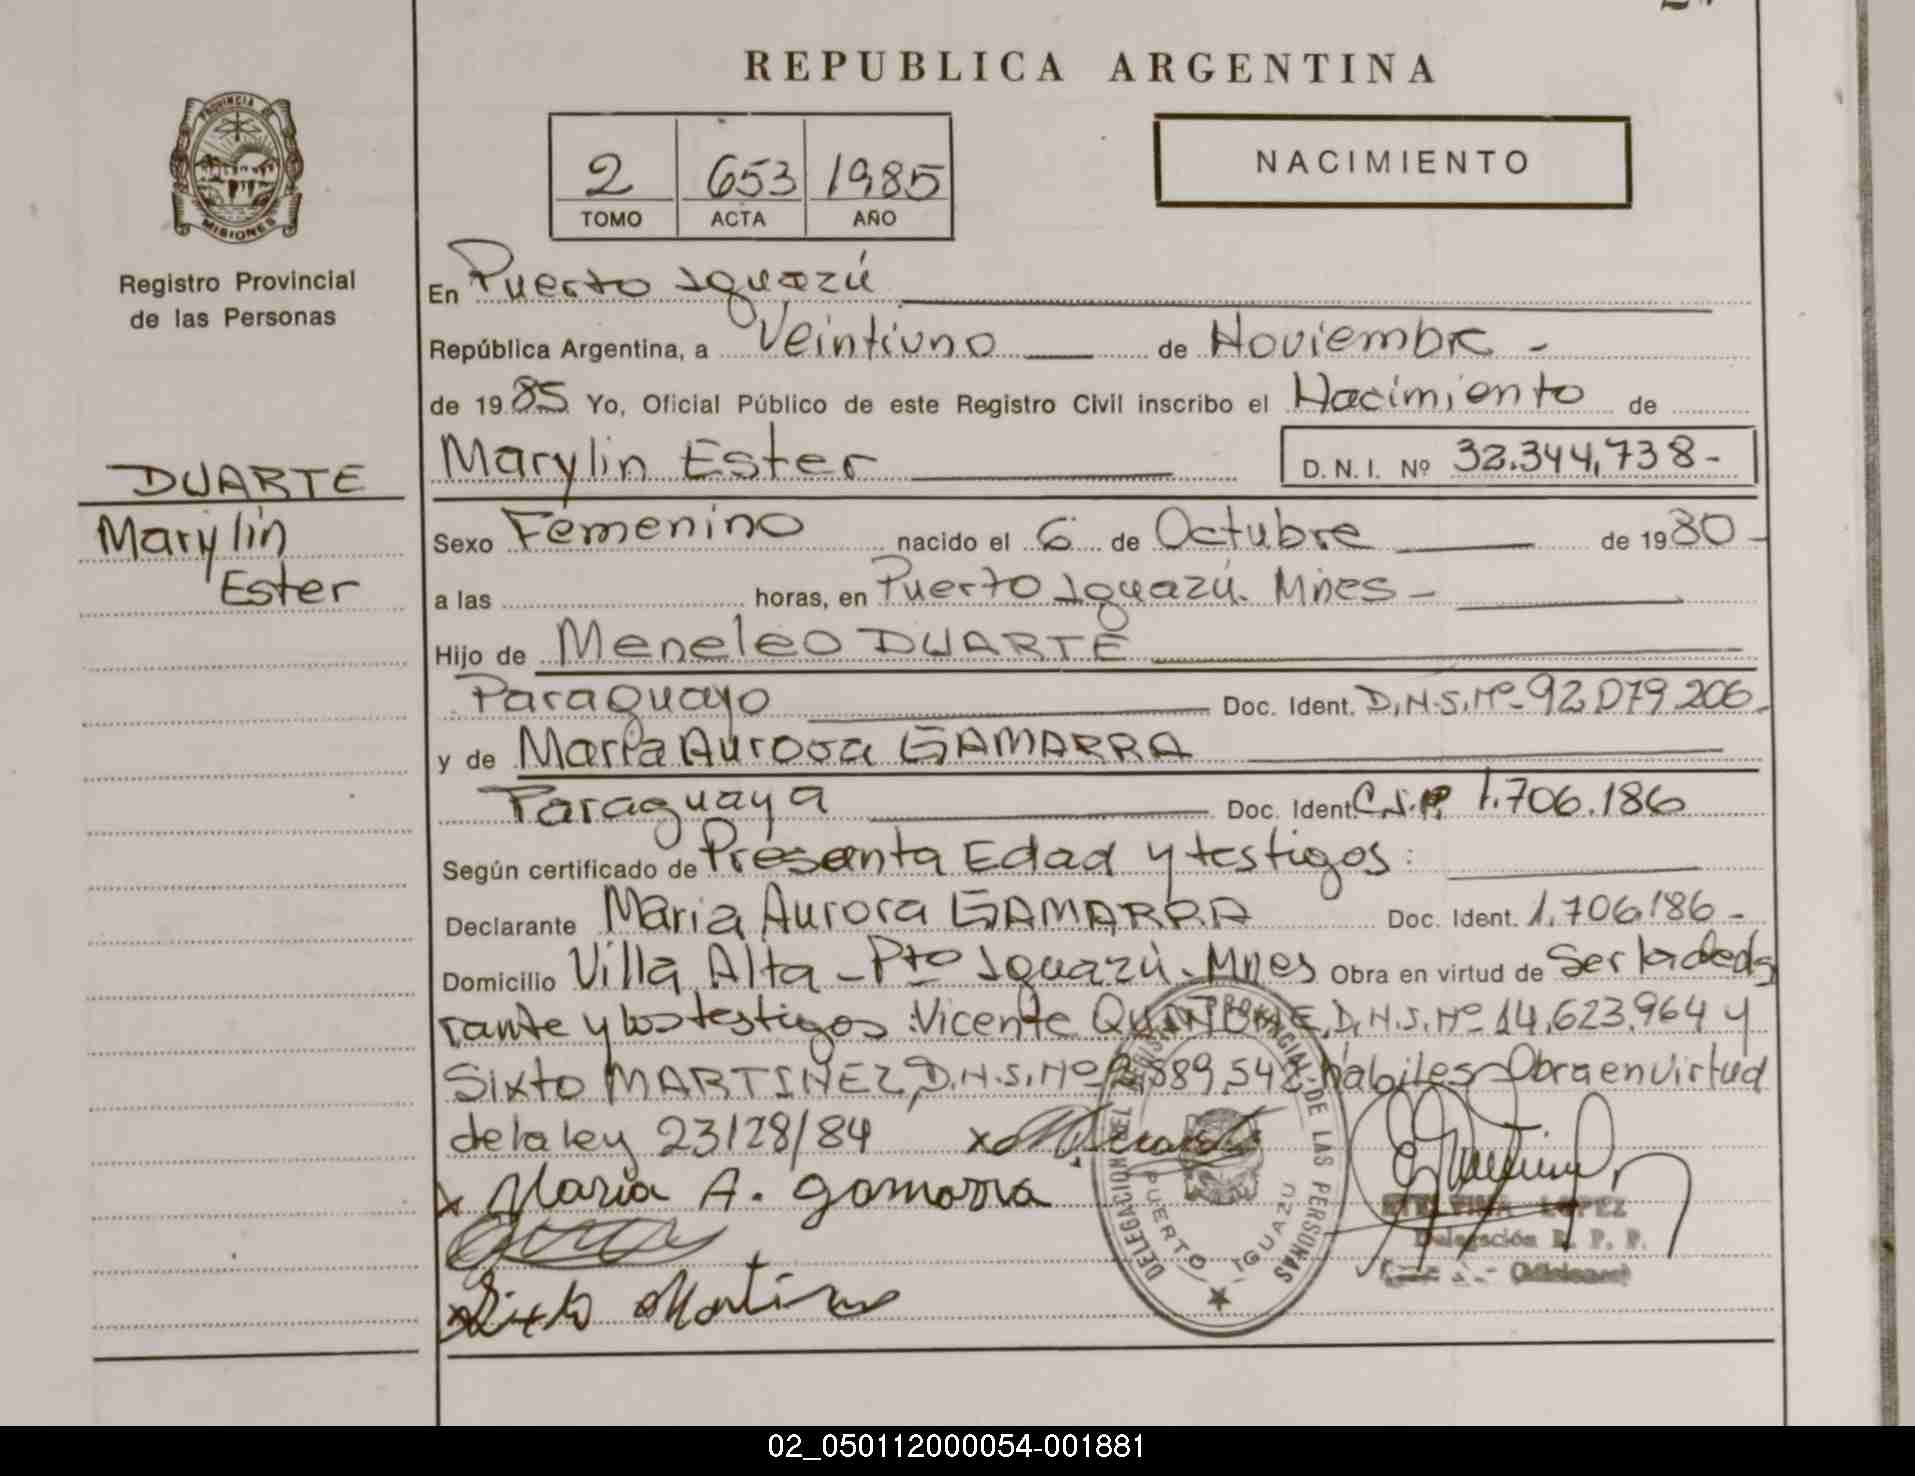 REPUBLICA ARGENTINA
PROVINCIA DE
MISIONES
Registro Provincial
de las Personas
2 653 1985
TOMO ACTA AÑO
NACIMIENTO
En Puerto Iguazú
República Argentina, a Veintiuno de Noviembre -
de 1985 Yo, Oficial Público de este Registro Civil inscribo el Nacimiento de
Marylin Ester D. N. I. Nº 32.344,738-
DUARTE
Marylin
Ester
Sexo Femenino nacido el 6 de Octubre de 1980-
a las horas, en Puerto Iguazú. Mnes -
Hijo de Meneleo DUARTE
Paraguayo Doc. Ident. D.N.I. Nº 92.079.206-
y de María Aurora GAMARRA
Paraguaya Doc. Ident. C.I.P. 1.706.186
Según certificado de Presenta Edad y testigos:
Declarante Maria Aurora GAMARRA Doc. Ident. 1.706.186-
Domicilio Villa Alta - Pto Iguazú - Mnes Obra en virtud de Ser la decla
rante y los testigos: Vicente D.N.I. Nº 14.623.964 y
Sixto MARTINEZ, D.N.I. Nº hábiles - Obra en virtud
de la ley 23128/84
x Maria A. gamarra
x Sixto Martinez
DELEGACION DEL REGISTRO PROVINCIAL DE LAS PERSONAS
PUERTO IGUAZU
LOPEZ
Delegación R. P. P.
(Misiones)
02_050112000054-001881